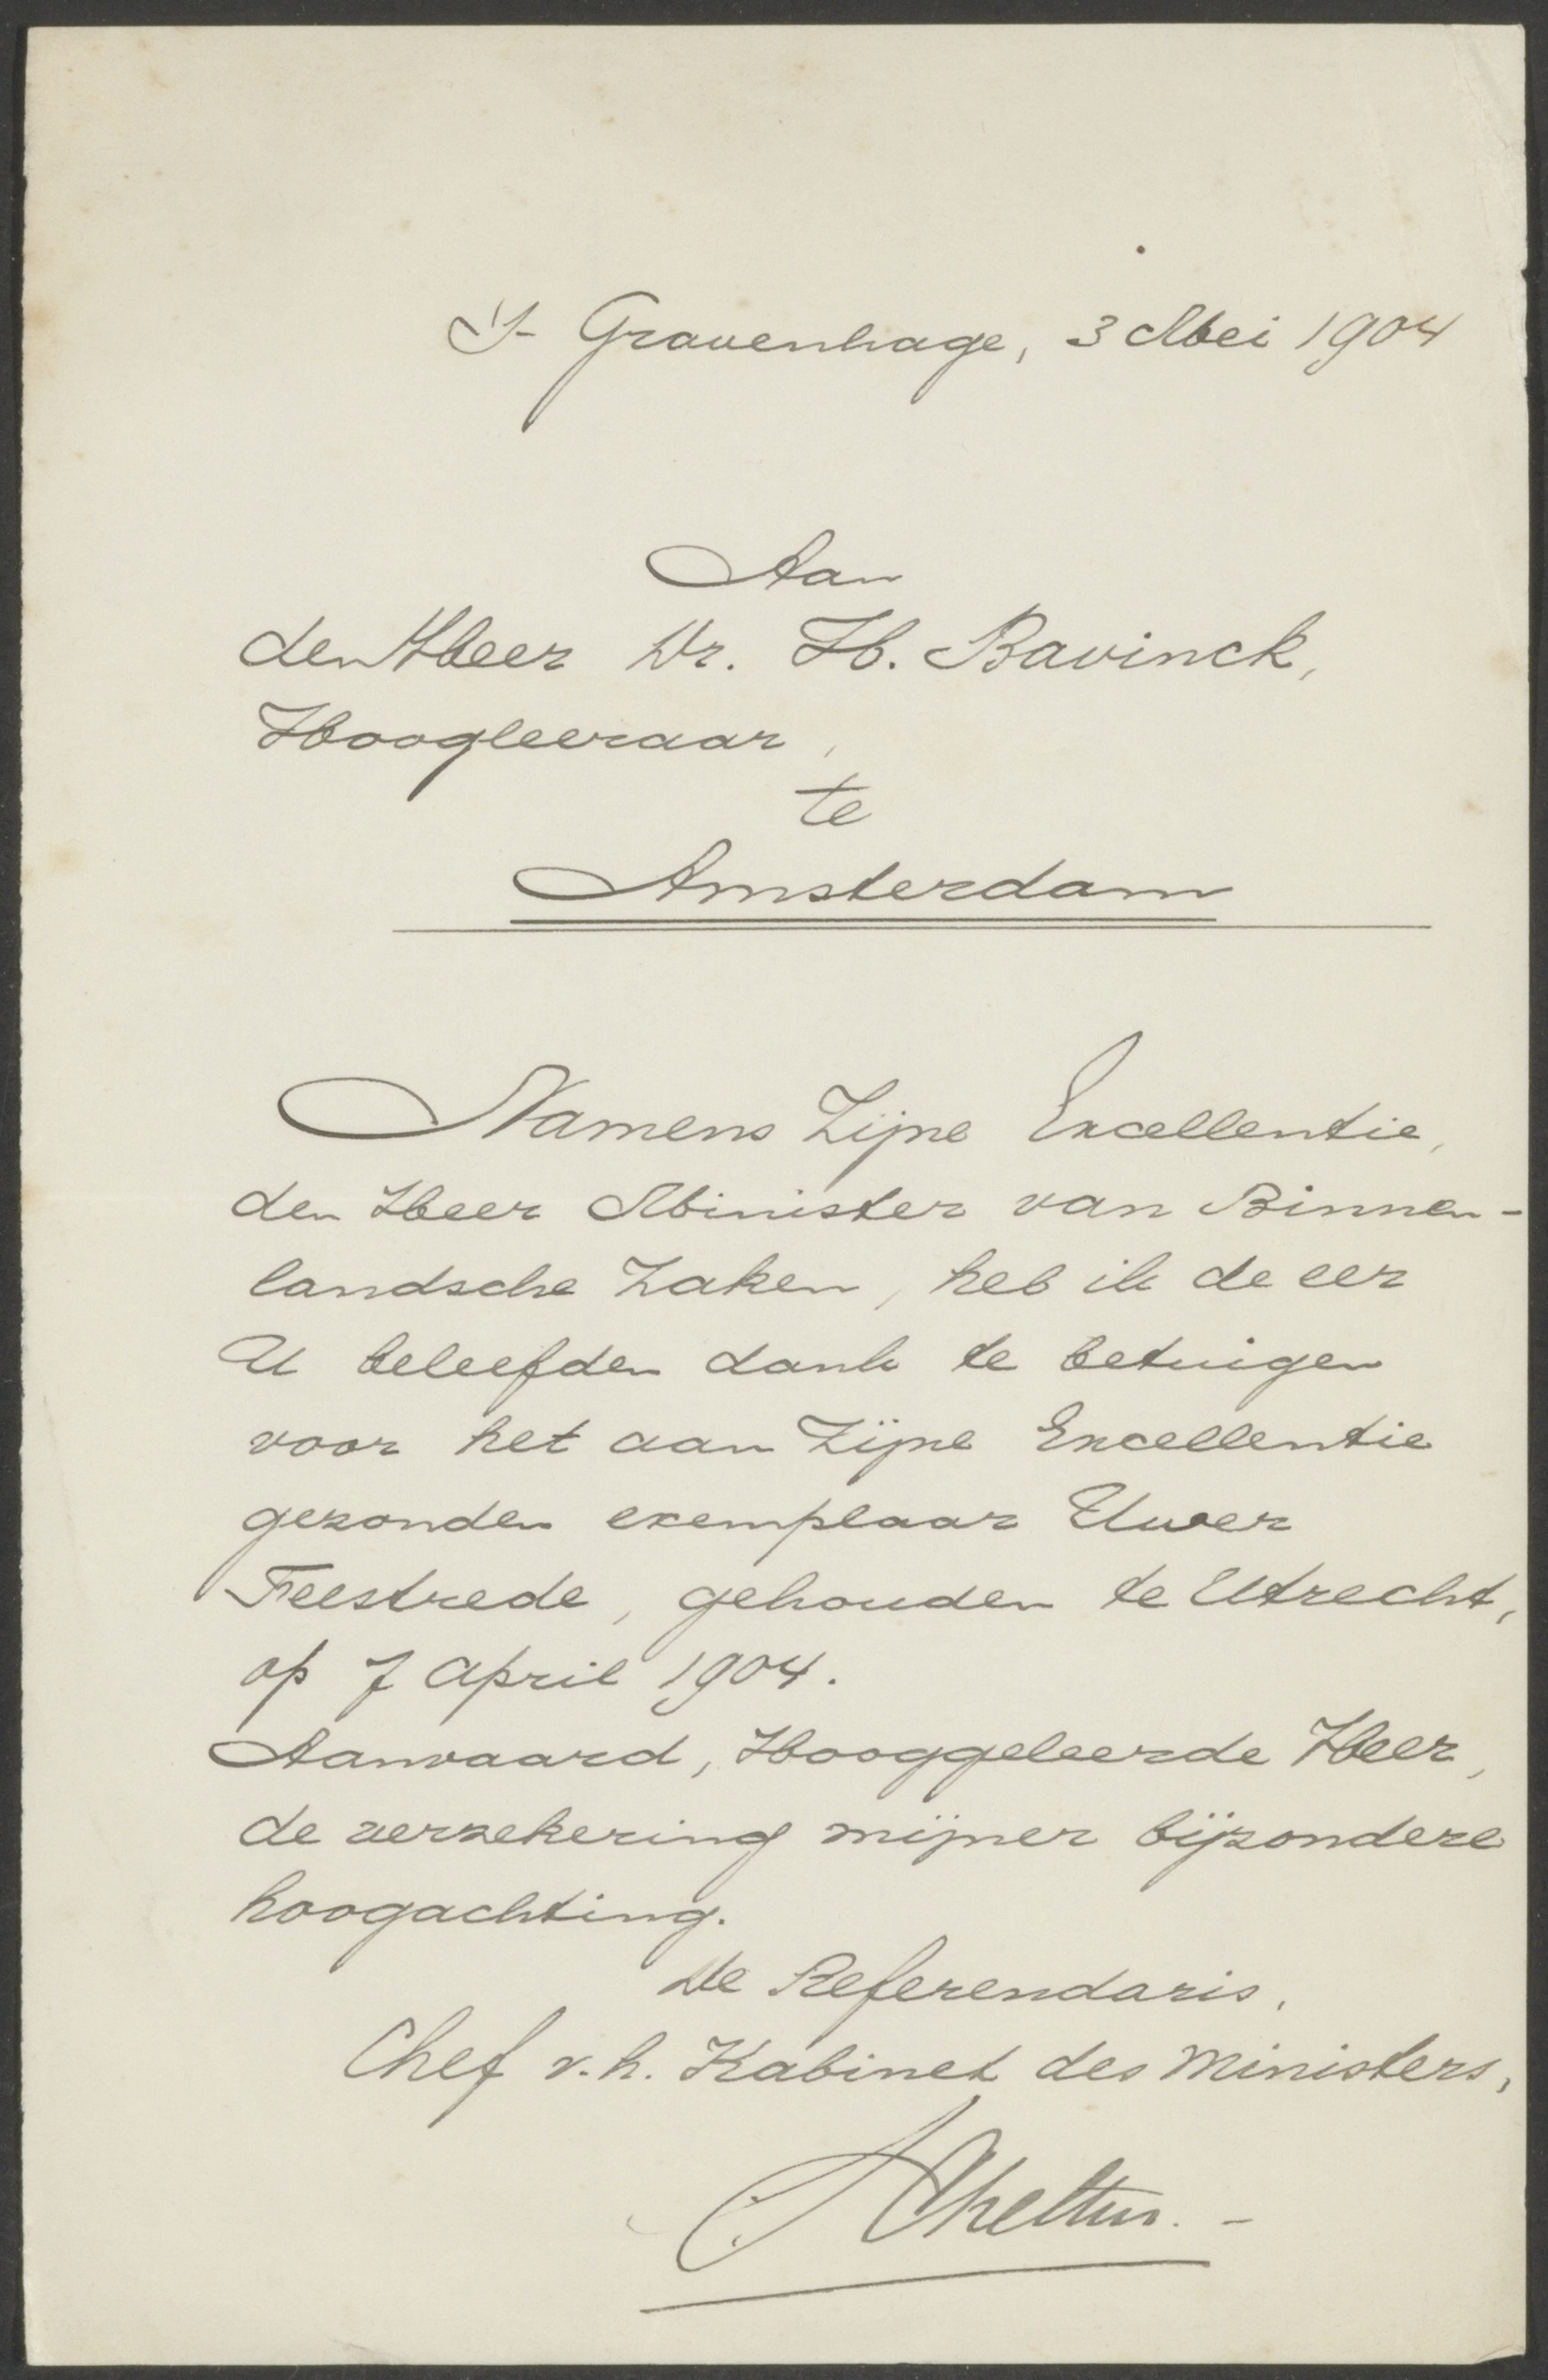 's Gravenhage, 3 Mei 1904
Aan
den Heer Dr. H. Bavinck,
Hoogleeraar,
te
Amsterdam
Namens Zijne Excellentie,
den Heer Minister van Binnen-
landsche Zaken, heb ik de eer
U beleefden dank te betuigen
voor het aan Zijne Excellentie
gezonden exemplaar Uwer
Feestrede, gehouden te Utrecht,
op 7 april 1904.
Aanvaard, Hooggeleerde Heer,
de verzekering mijner bijzondere
hoogachting.
De Referendaris,
Chef v.h. Kabinet des Ministers,